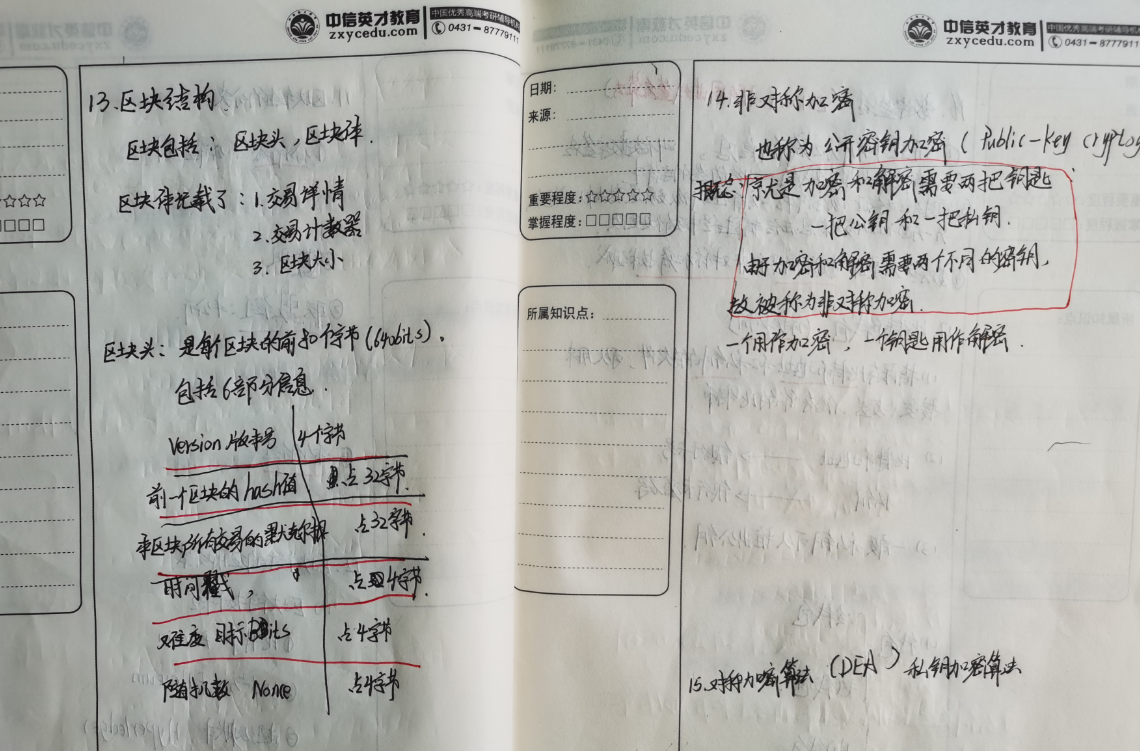 中信英才教育
zxycedu.com
中国优秀高端考研辅导机
0431-87779111
13.区块结构.
区块包括: 区块头,区块体.
区块体记载了: 1.交易详情
2.交易计数器
3. 区块大小
区块头: 是每个区块的前80个字节(640bits).
包括6部分信息.
Version 版本号 4个字节
前一个区块的hash值 占32字节.
本区块所有交易的默克尔根 占32字节.
时间戳, 占4字节.
难度 目标Bits 占4字节
随机数 Nonce 占4字节
中信英才教育
zxycedu.com
中国优秀高端考研辅导机
0431-8777911
日期:
来源:
重要程度:☆☆☆☆☆
掌握程度:□□□□□
所属知识点:
14.非对称加密
也称为 公开密钥加密 (Public-key cryptog
概念: 就是加密和解密需要两把钥匙
一把公钥和一把私钥.
由于加密和解密需要两个不同的密钥,
故被称为非对称加密.
一个用作加密, 一个钥匙用作解密.
15.对称加密算法 (DEA) 私钥加密算法